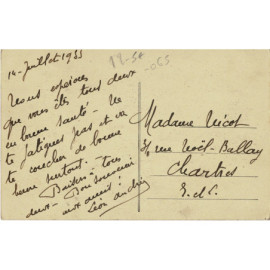 14 - Juillet 1933
Nous espérons
que vous êtes tous deux
en bonne santé - Ne
te fatigues pas et va
te coucher de bonne
heure surtout.
Baisers à tous
deux - Bon souvenir
aux amis !
Léon André
Madame Nicot
rue Noël-Ballay
Chartres
E.-&-L.